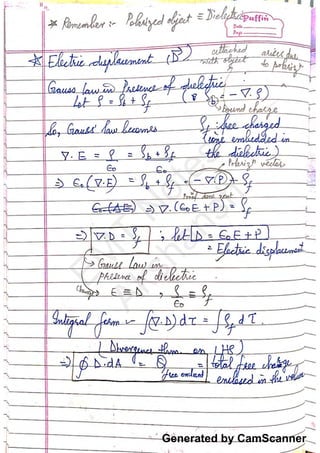 * Remember :- Polarized object ≡ Dielectric
Puffin
Date
Page
* Electric displacement (D) attached with object arises due to polarizⁿ
Gauss Law in Presence of dielectric
Let ρ = ρb + ρf (ρb = -∇.P)
bound charge
So, Gauss' law becomes ρf : free charged
(ions embedded in
∇.E = ρ/ε₀ = (ρb + ρf)/ε₀ the dielectric)
Polarizⁿ vector
⇒ ε₀(∇.E) = ρb + ρf = -∇.(P) + ρf
⇒ ∇.(ε₀E + P) = ρf
⇒ ∇.D = ρf ; let D = ε₀E + P
= Electric displacement
→ Gauss Law in
presence of dielectric
Changes E ≡ D , ρ/ε₀ ≡ ρf
Integral form :- ∫(∇.D)dτ = ∫ρf dτ
(Divergence thm. on LHS)
⇒ ∮D.dA = Q free enclosed = total free charge
enclosed in the volume
Generated by CamScanner